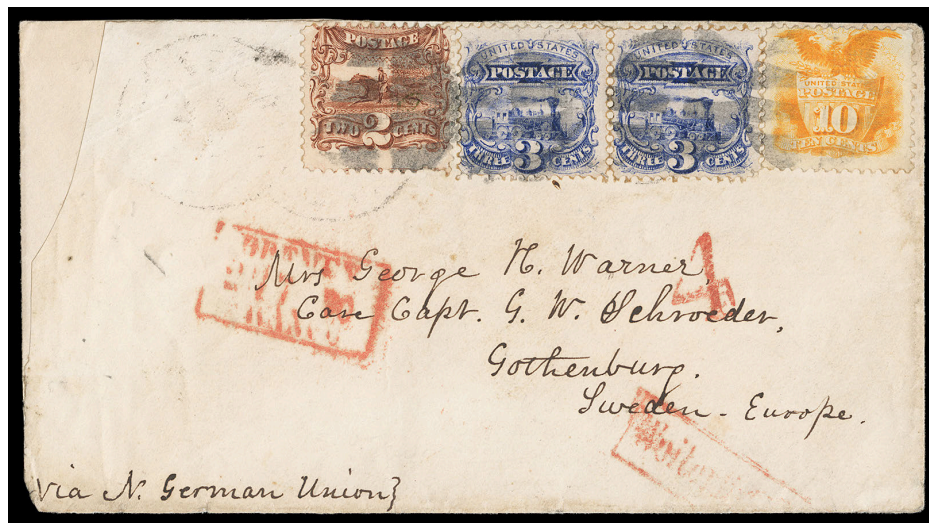 POSTAGE
TWO 2 CENTS
UNITED STATES
POSTAGE
THREE 3 CENTS
UNITED STATES
POSTAGE
THREE 3 CENTS
UNITED STATES
POSTAGE
10
TEN CENTS
4
Mrs George H. Warner
Care Capt. G. W. Schroeder,
Gothenburg.
Sweden - Europe.
via N. German Union}